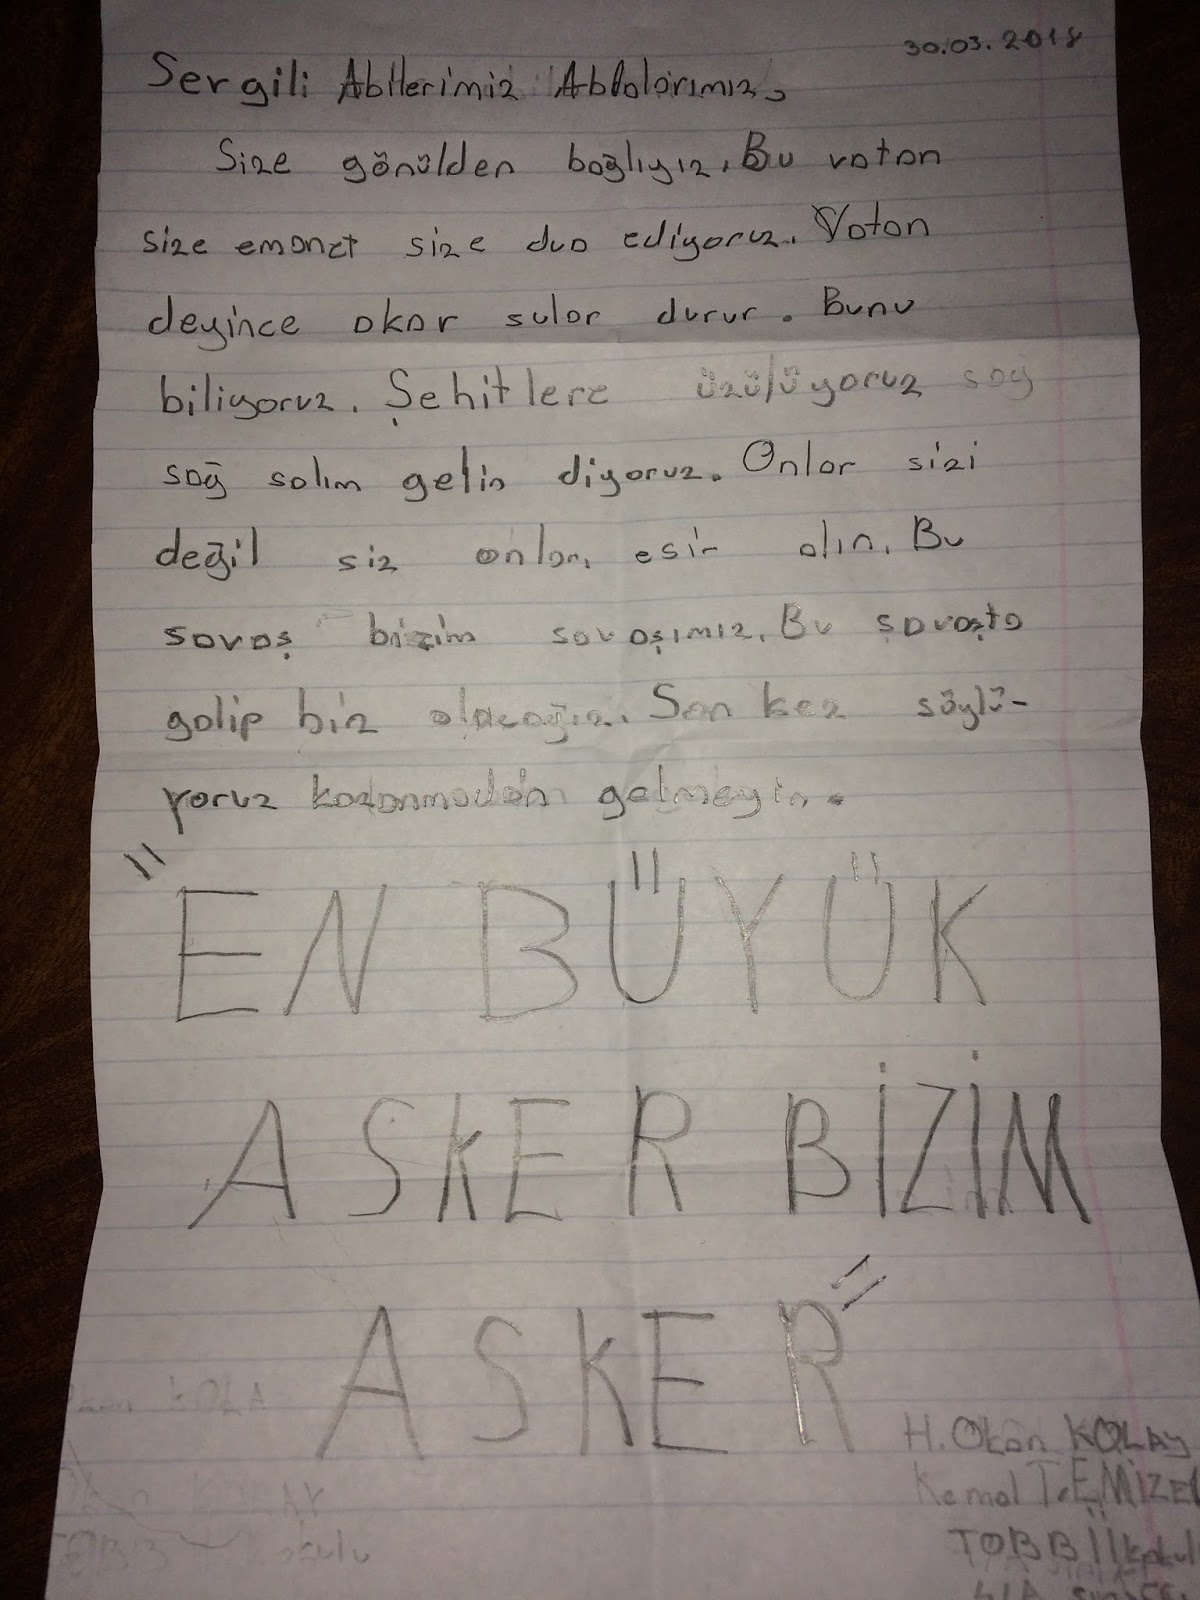 30.03.2018
Sergili Abilerimiz Ablalarımız,
Size gönülden bağlıyız. Bu vatan
size emanet size dua ediyoruz. Vatan
deyince akar sular durur. Bunu
biliyoruz. Şehitlere üzülüyoruz sağ
sağ salim gelin diyoruz. Onlar sizi
değil siz onları esir alın. Bu
savaş bizim savaşımız. Bu savaşta
galip biz olacağız. Son kez söylü-
yoruz kazanmadan gelmeyin.
"EN BÜYÜK
ASKER BİZİM
ASKER"
H. Okan KOLAY
Kemal TEMİZEL
TOBB İlkokul